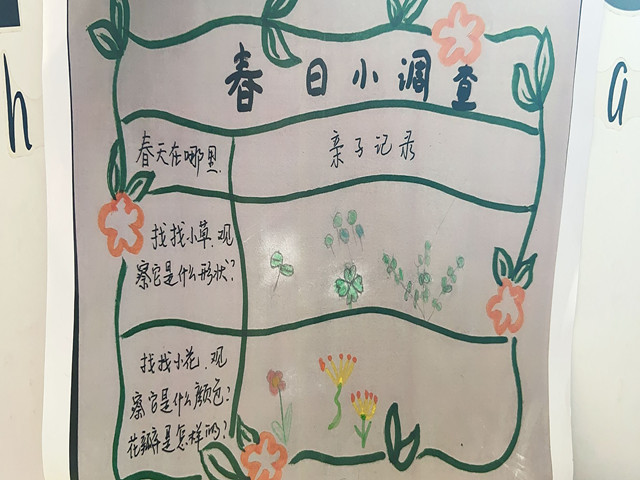 h
a
春日小调查
春天在哪里
亲子记录
找找小草,观
察它是什么形状?
找找小花,观
察它是什么颜色?
花瓣是怎样的?